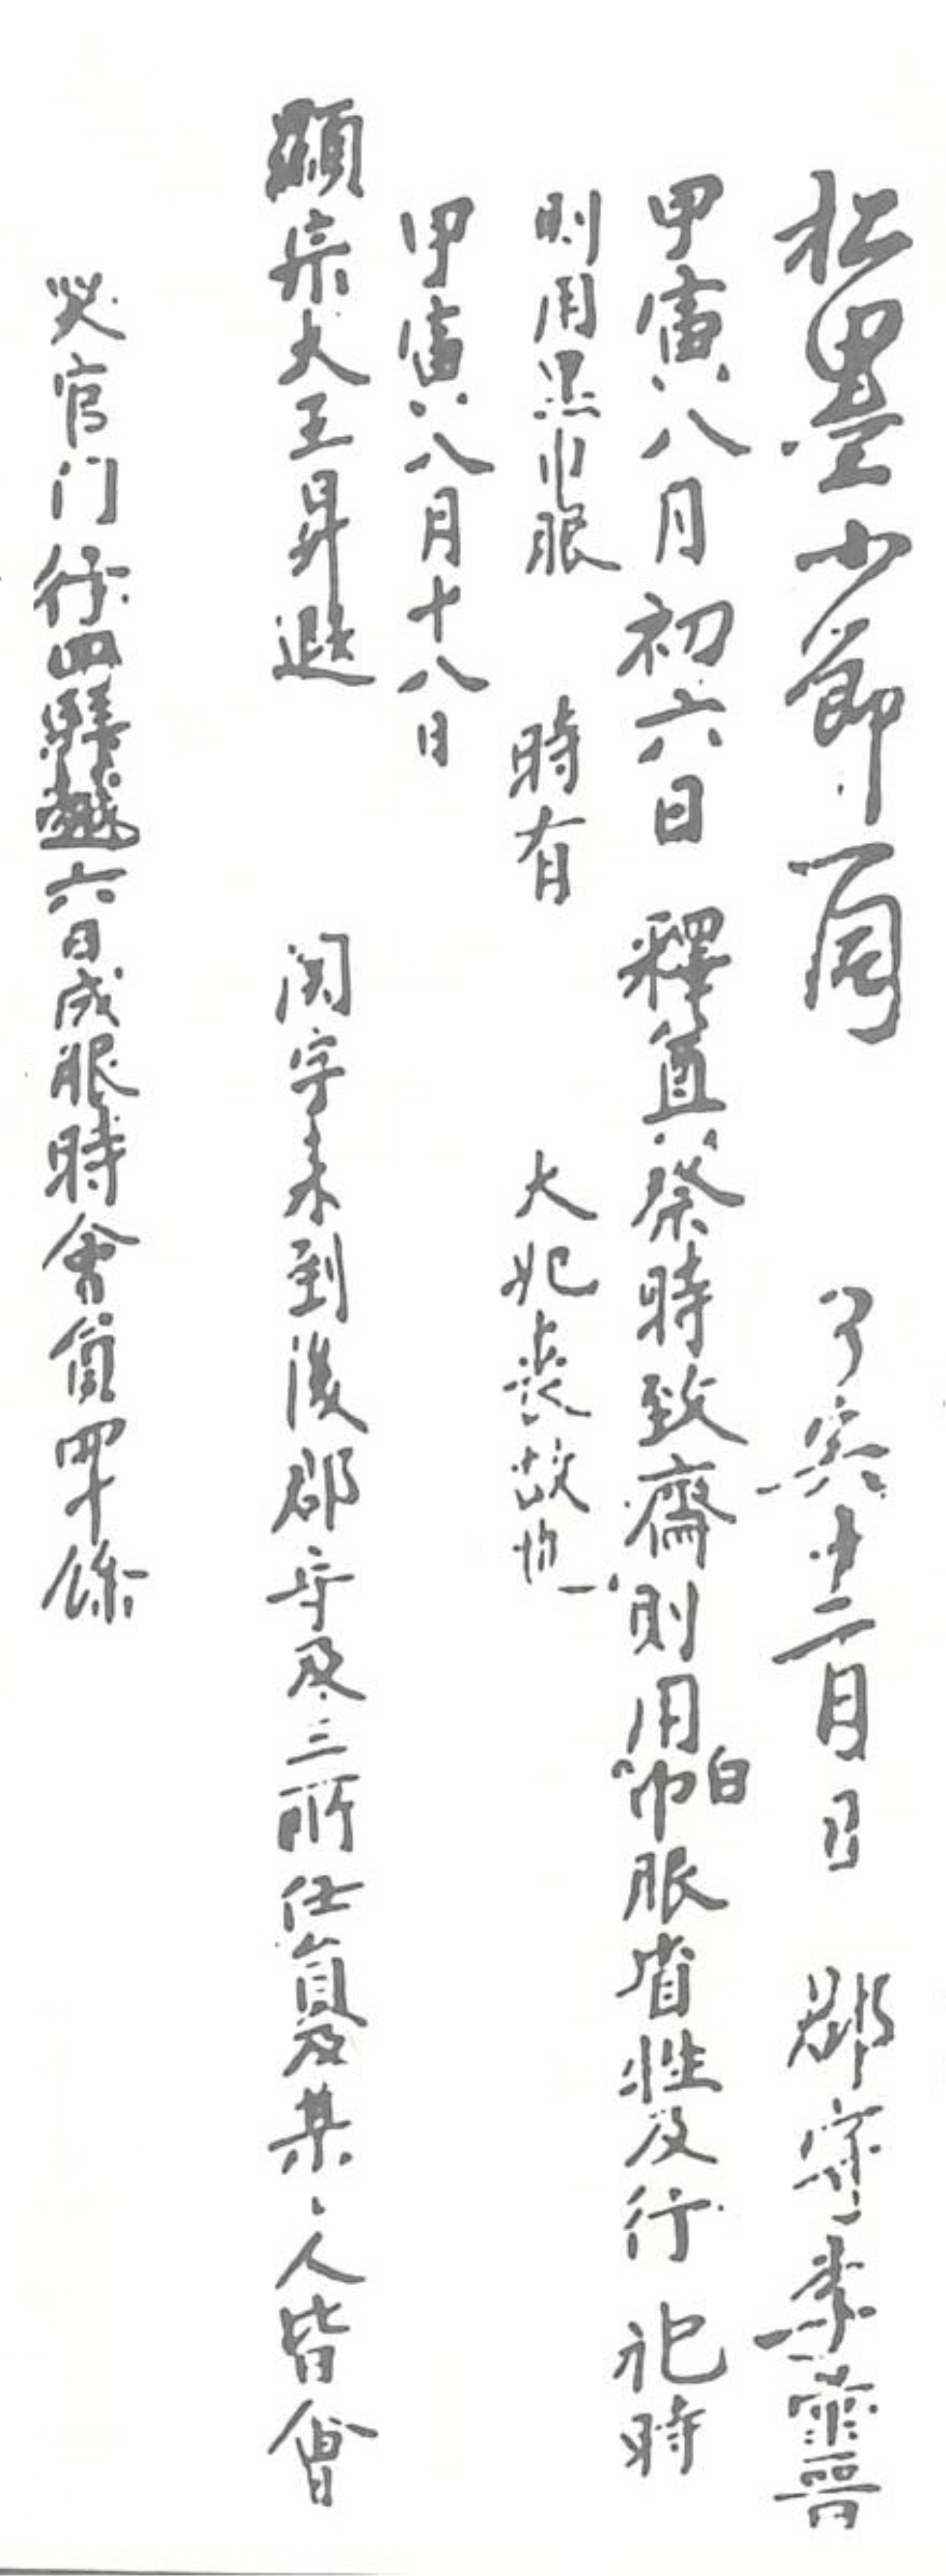 松墨小節一同 丁亥十二月日 郡守李
甲寅八月初六日 釋奠祭時致齋則用白巾服省牲及行 祀時
則用黑巾服 時有 大妃喪故也
甲寅八月十八日
顯宗大王昇遐 関字来到後郡守及三所任員及某〻人皆會
哭官门行四拜越六日成服時會員四十餘